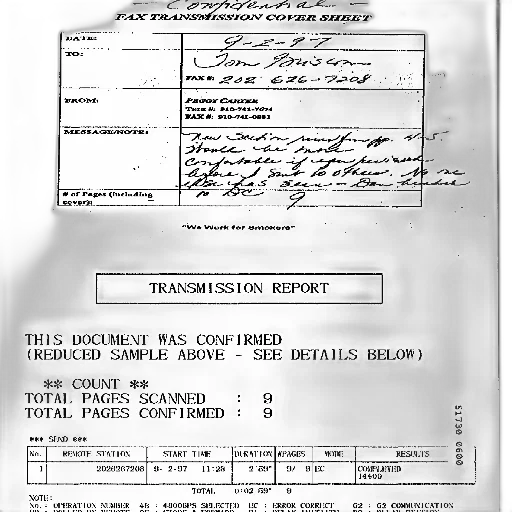 - Confidential -
FAX TRANSMISSION COVER SHEET
DATE: 9-2-97
TO: Tom
FAX #: 202 626-7208
FROM: PEGGY CARTER
TELE #: 910-741-7674
FAX #: 910-741-0881
MESSAGE/NOTE: New Section
would be more
comfortable if
before I send to others. No one
else has seen - Dan
# of Pages (including to DC 9
cover):
"We Work for Smokers"
TRANSMISSION REPORT
THIS DOCUMENT WAS CONFIRMED
(REDUCED SAMPLE ABOVE - SEE DETAILS BELOW)
** COUNT **
TOTAL PAGES SCANNED : 9
TOTAL PAGES CONFIRMED : 9
*** SEND ***
No. REMOTE STATION START TIME DURATION #PAGES MODE RESULTS
1 2026267208 9- 2-97 11:28 2'59" 9/ 9 EC COMPLETED
14400
TOTAL 0:02'59" 9
NOTE:
No. : OPERATION NUMBER 48 : 4800BPS SELECTED EC : ERROR CORRECT G2 : G2 COMMUNICATION
51730 0600